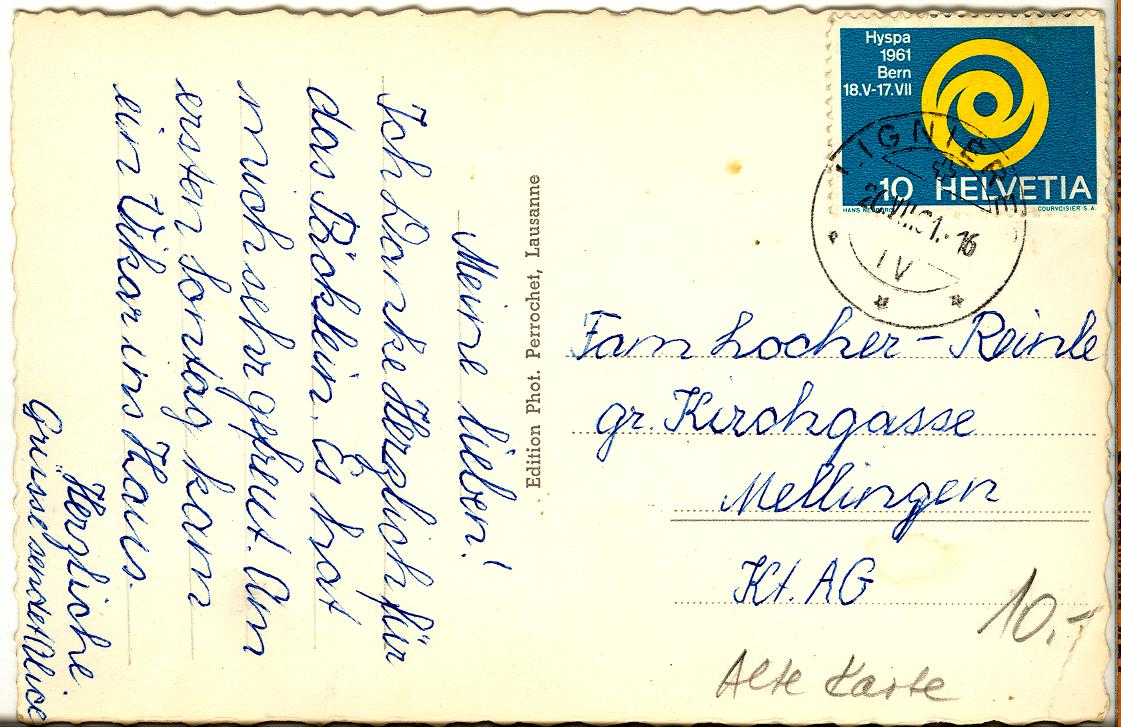 Meine lieben!
Ich Danke Herzlich für
das Päcklein. Es hat
mich sehr gefreut. Am
ersten Sontag kam
ein Vikar ins Haus.
Herzliche
Grüsse sendet Alice
Edition Phot. Perrochet, Lausanne
Hyspa
1961
Bern
18.V-17.VII
10 HELVETIA
COURVOISIER S.A.
LIGNIER
IV
Fam Locher-Reinle
gr. Kirchgasse
Mellingen
Kt. AG
10.-
Alte Karte